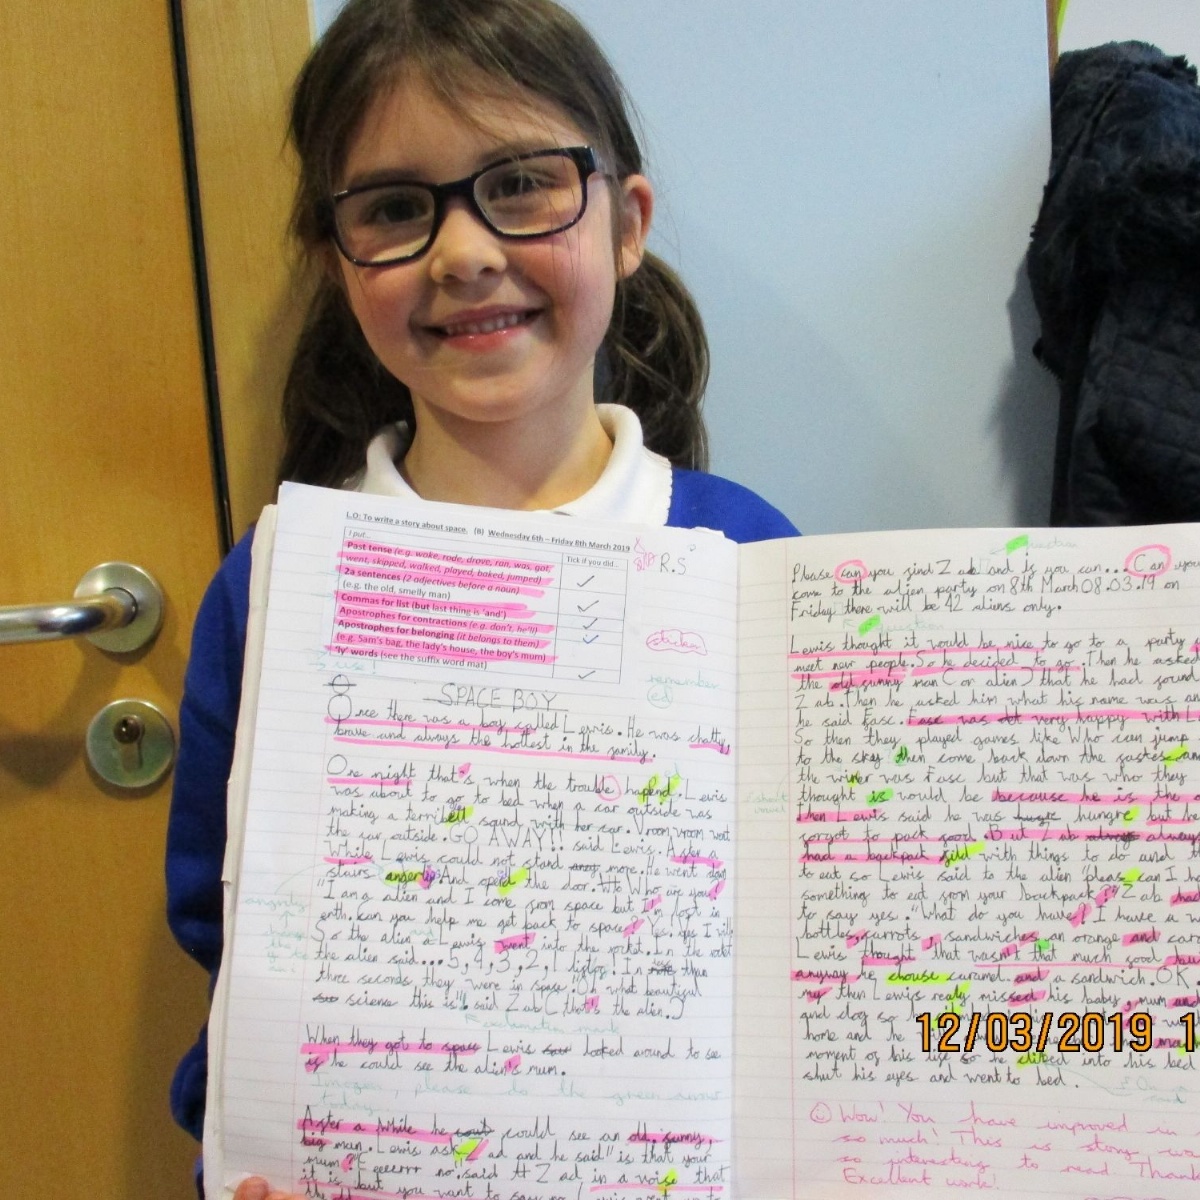 L.O: To write a story about space. (B) Wednesday 6th – Friday 8th March 2019
I put... Tick if you did...
Past tense (e.g. woke, rode, drove, ran, was, got,
went, skipped, walked, played, baked, jumped)
2a sentences (2 adjectives before a noun)
(e.g. the old, smelly man)
Commas for list (but last thing is 'and')
Apostrophes for contractions (e.g. don't, he'll)
Apostrophes for belonging (it belongs to them)
(e.g. Sam's bag, the lady's house, the boy's mum)
'ly' words (see the suffix word mat)
R.S
remember
ed
SPACE BOY
Once there was a boy called Lewis. He was chatty,
brave and always the hottest in the family.
One night that's when the trouble hapend. Lewis
was about to go to bed when a car outside was
making a terribell sound with her car. Vroom vroom went
the car outside. GO AWAY!! said Lewis. After a
While Lewis could not stand any more. He went down
stairs angerlip. And opend the door. Who are you?
"I am a alien and I come from space but I'm lost in
erth. can you help me get back to space? Yes, yes I will
So the alien and Lewis went into the rocket. In the rocket
the alien said... 5, 4, 3, 2, 1 listof. In less than
three seconds they were in space. Oh what beautiful
science this is" said Zab (that's the alien.)
Exclamation mark
When they got to space Lewis looked around to see
if he could see the alien's mum.
Imogen, please do the green arrow
today.
After a while he could see an old, funny,
big man. Lewis ask Zad and he said "is that your
mum?" Egeerrr no. said Zad in a voise that
Please can you find Zab and if you can... Can you
come to the alien party on 8th March 08.03.19 on
Friday there will be 42 aliens only.
Lewis thought it would be nice to go to a party
meet new people. So he decided to go. Then he asked
the old funny man (or alien) that he had found
Zab. Then he asked him what his name was an
he said Fasc. Fasc was very happy with L
So then they played games like Who can jump
to the sky then come back down the fastes an
the winer was Fasc but that was who they
thought is would be because he is the
then Lewis said he was hungre but he
forgot to pack food. But Zab always
had a backpack fild with things to do and th
to eat so Lewis said to the alien "pleas can I ha
something to eat from your backpack?" Zab had
to say yes. "What do you have? I have a w
bottles, carrots, sandwiches, an orange and car
Lewis thought that wasn't that much food but
anyway he chouse caramel and a sandwich. OK
my then Lewis realy missed his baby, mum and
and dog so he
home and he
moment of his life so he climed into his bed
shut his eyes and went to bed.
Wow! You have improved in
so much! This is story wa
so interesting to read. Than
Excellent work!
12/03/2019 1